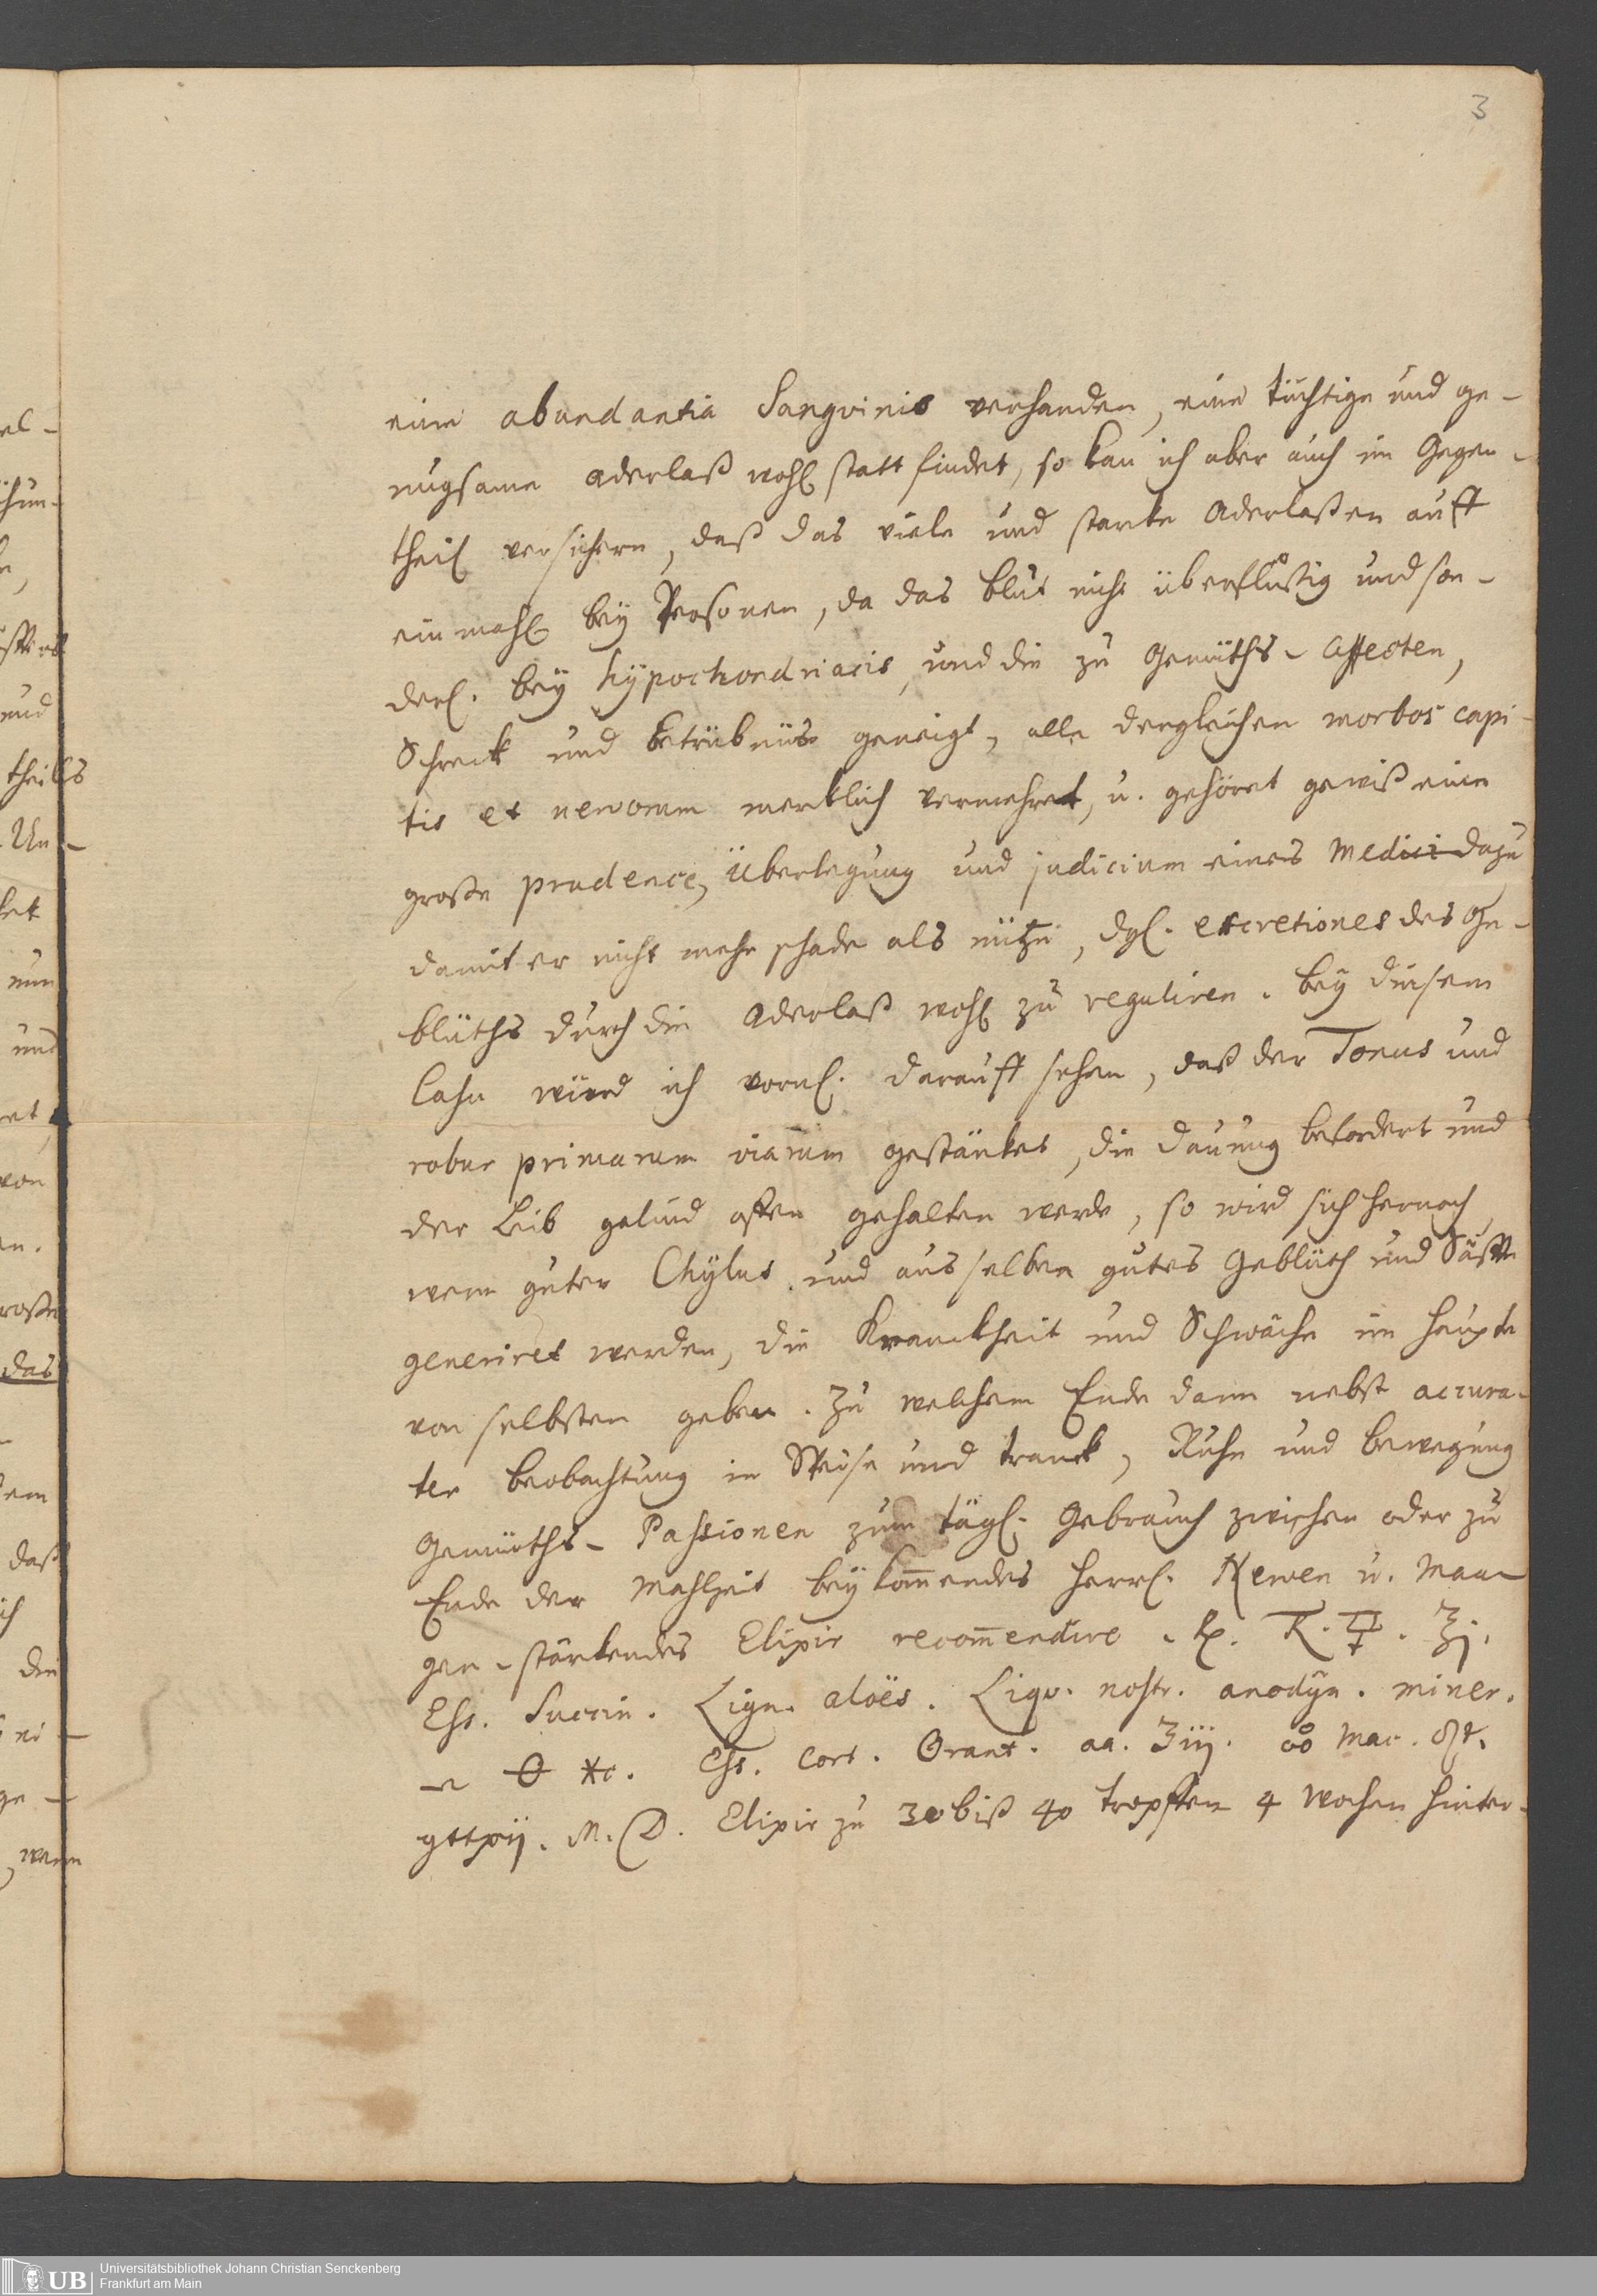 3
eine abundantia Sangvinis verhanden, eine tüchtige und ge-
nugsame Aderlaß wohl statt findet, so kan ich aber auch im Gegen-
theil versichern, daß das viele und starke Aderlaßen auff
einmahl bey Personen, da das Blut nicht überflüßig und son-
derl. bey hypochondriacis, und die zu Gemüths-Affecten,
Schreck und Betrübnüs geneigt, alle dergleichen morbos capi-
tis et nervorum mercklich vermehret, u. gehöret gewiß eine
große prudence, Überlegung und judicium eines Medici dazu
damit er nicht mehr schade als nütze, dgl. excretiones des Ge-
blüths durch die Aderlaß wohl zu reguliren. Bey diesem
Casu würd ich vornl. darauff sehen, daß der Tonus und
robur primarum viarum gestärket, die Dauung befordert und
der Leib gelind offen gehalten werde, so wird sich hernach
wenn guter Chylus und aus selben gutes Geblüth und Säffte
generiret werden, die Kranckheit und Schwäche im Haupte
von selbsten geben. Zu welchem Ende dann nebst accura-
ter Beobachtung in Speise und tranck, Ruhe und Bewegung
Gemüths-Passionen zum tägl. Gebrauch zwischen oder zu
Ende der Mahlzeit beykommendes herrl. Nerven u. Maa-
gen-stärkendes Elixir recommendire. Rp. ʒj.
Ess. Succin. Lign. aloës. Liqv. nostr. anodyn. miner.
Ess. Cort. Orant. aa. ʒiij. Mac.
gtt xij. M. D. Elixir zu 30 biß 40 tropffen 4 Wochen hinter-
el-
und
theils
Un-
nun
und
von
das
daß
ich
die
wenn
UB
Universitätsbibliothek Johann Christian Senckenberg
Frankfurt am Main